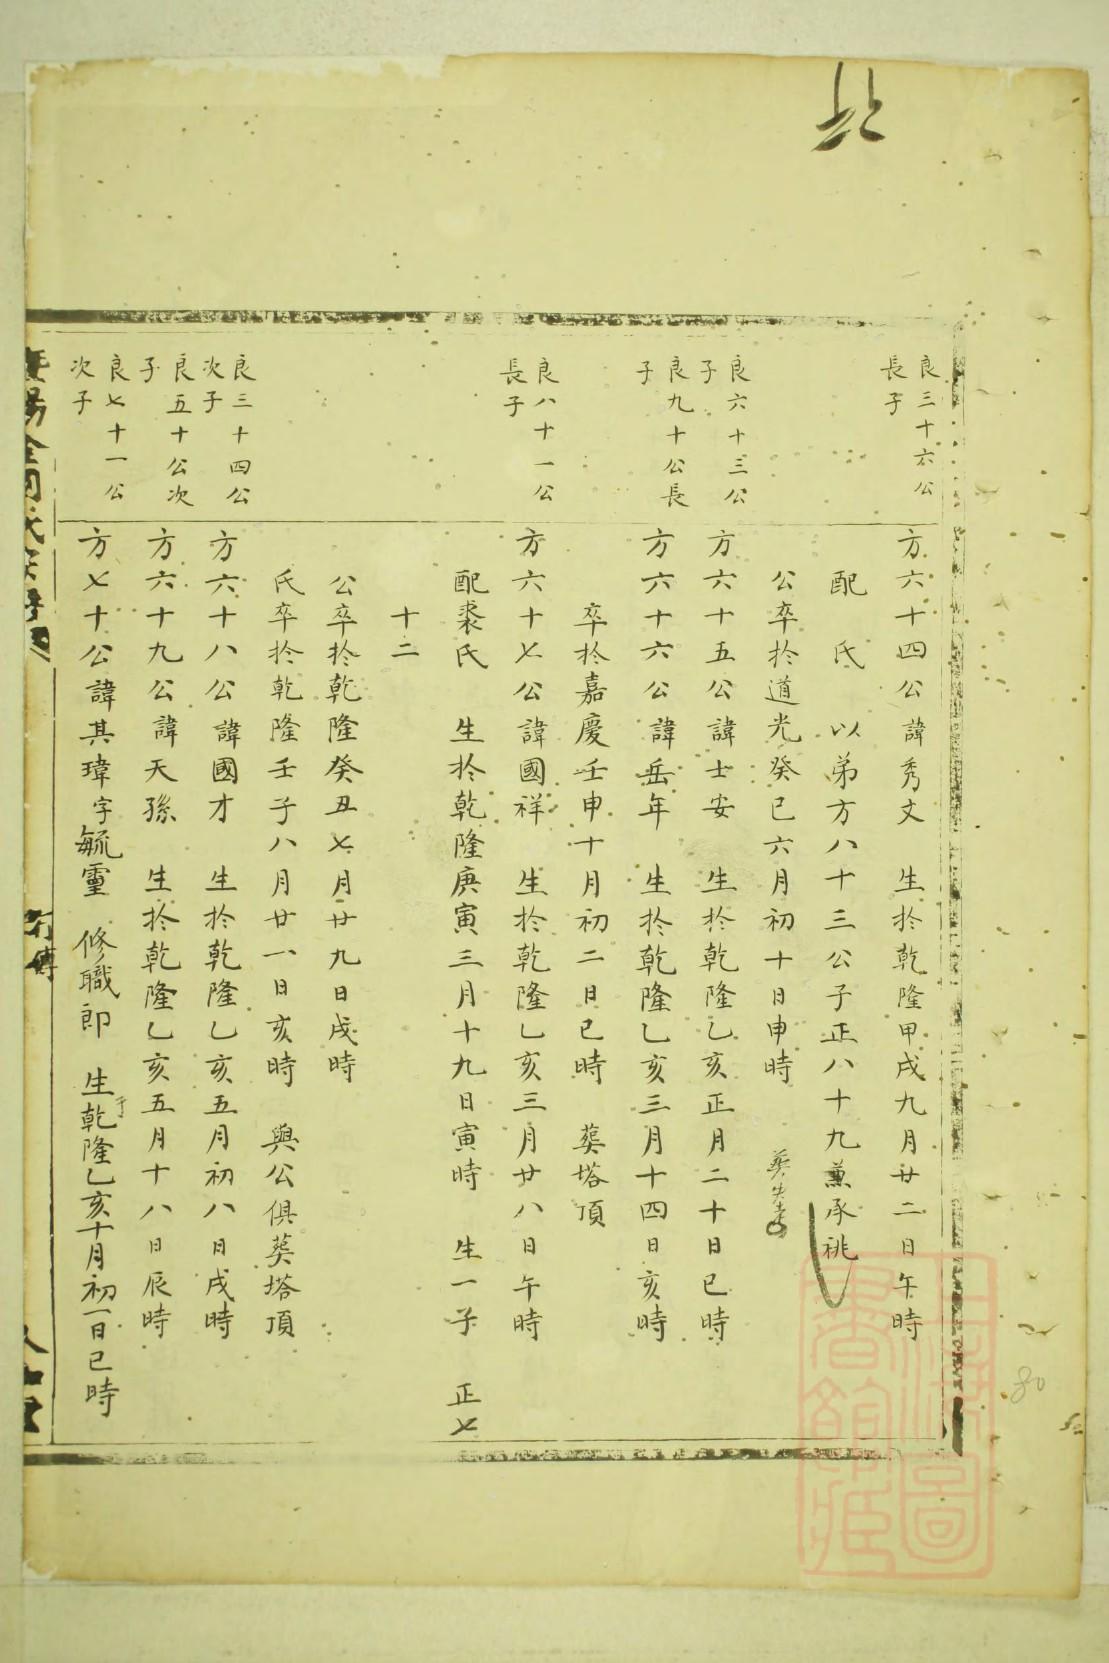 良三十六公
長子
方六十四公諱秀文 生於乾隆甲戌九月廿二日午時
配 氏 以弟方八十三公子正八十九兼承祧
公卒於道光癸巳六月初十日申時 葬
良六十三公
子
方六十五公諱士安 生於乾隆乙亥正月二十日巳時
良九十公長
子
方六十六公諱岳年 生於乾隆乙亥三月十四日亥時
卒於嘉慶壬申十月初二日巳時 葬塔頂
良八十一公
長子
方六十七公諱國祥 生於乾隆乙亥三月廿八日午時
配裘氏 生於乾隆庚寅三月十九日寅時 生一子 正七
十二
公卒於乾隆癸丑七月廿九日戌時
氏卒於乾隆壬子八月廿一日亥時 與公俱葬塔頂
良三十四公
次子
方六十八公諱國才 生於乾隆乙亥五月初八日戌時
良五十公次
子
方六十九公諱天孫 生於乾隆乙亥五月十八日辰時
良七十一公
次子
方七十公諱其瑋字毓靈 修職郎 生于乾隆乙亥十月初一日巳時
上海圖
書館藏
80